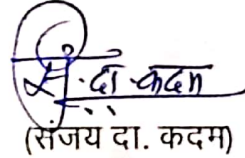 सं. दा. कदम
(संजय दा. कदम)